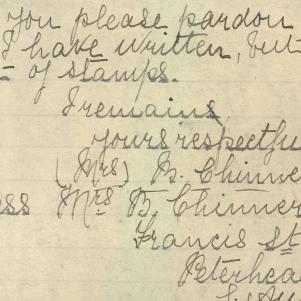 you please pardon
I have written, but
of stamps.
I remains
yours respectfu
(Mrs) B. Chinne
ess Mrs B. Chinner
Francis st
Peterhea